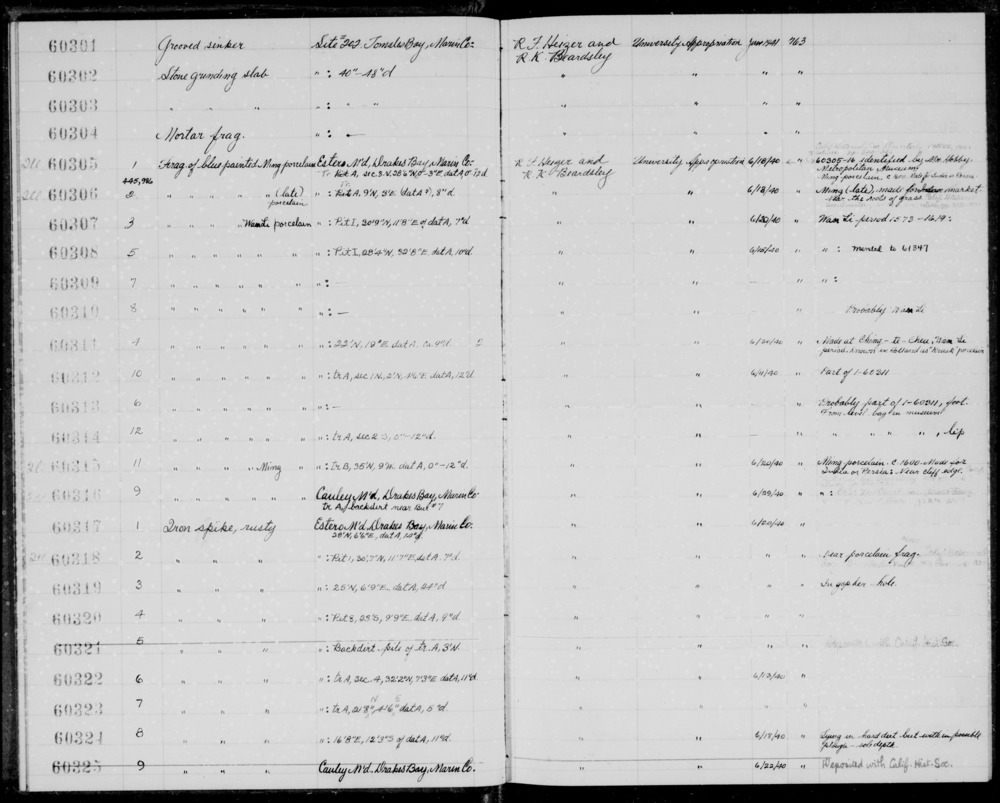 60301 Grooved sinker Site #202. Tomales Bay, Marin Co: R F Heizer and University Appropriation June 1941 763
R K Beardsley
60302 Stone grinding slab " : 40"-48"d " " " "
60303 " " " " : " " " " " "
60304 Mortar frag. " : — " " " "
60305 1 Frag. of blue painted Ming porcelain Estero M'd, Drakes Bay, Marin Co: R F Heizer and University Appropriation 6/18/40 " 60305-16 identified by Mr. Hobby.
445,986 R K Beardsley Metropolitan Museum
Ming porcelain,
60306 2 " " " " (late) " : 9'N, 3'E (dat A), 8"d " " 6/18/40 " Ming (late), made for market
porcelain the roots of grass
60307 3 " " " " Wan Li porcelain " : Pit I, 30'9"N, 11'8"E of dat A, 7"d " " 6/20/40 " Wan Li period 1573-1619:
60308 5 " " " " " " : Pit I, 28'4"N, 32'8"E dat A, 10"d " " " " : mended to 61347
60309 7 " " " " " " : — " " " " " :
60310 8 " " " " " " : — " " " Probably Wan Li
60311 4 " " " " " " : 22'N, 19'E dat A, Ca 9"d " " " Made at Ching-te-Chen, Wan Li
period. Known in Holland as "Kraak" porcelain
60312 10 " " " " " " : tr A, sec 1 N, 2'N, dat A, 12"d " " 6/11/40 " Part of 1-60311
60313 6 " " " " " " : — " " " Probably part of 1-60311, foot.
From level bag in museum
60314 12 " " " " " " : tr A, sec 2 S, 0"-12"d. " " — " " " " " , lip
60315 11 " " " " Ming " " : Tr B, 35'N, 9'W. dat A, 0"-12"d. " " 6/20/40 " Ming porcelain. C. 1600. Made for
India or Persia: Near cliff edge.
60316 9 " " " " " " Cauley M'd, Drakes Bay, Marin Co " " 6/29/40 " " :
tr A, backdirt near Bur. #7
60317 1 Iron spike, rusty Estero M'd. Drakes Bay, Marin Co: " " 6/20/40 "
28'N, 6'6"E, dat A, 10"d.
60318 2 " " " " : Pit 1, 30'7"N, 11'7"E, dat A, 7"d. " " " " near porcelain frag.
60319 3 " " " " : 25'N, 6'9"E, dat A, 44"d " " " " In gopher hole.
60320 4 " " " " : Pit 8, 25'S, 9'9"E dat A, 9"d. " " " "
60321 5 " " " " : Backdirt pile of tr. A, 3'N. " " " " Deposited with Calif. Hist. Soc.
60322 6 " " " " : tr A, sec. 4, 32'2"N, 7'3"E dat A, 11"d. " " 6/13/40 "
60323 7 " " " " : tr A, 21'8"N, 4'6"E dat A, 5"d " " " "
60324 8 " " " " : 16'8"E, 12'3"S of dat A, 11"d. " " 6/18/40 " Lying in hard dirt but within possible
plough-sole depth.
60325 9 " " " Cauley M'd. Drakes Bay, Marin Co. " " 6/22/40 " Deposited with Calif. Hist. Soc.